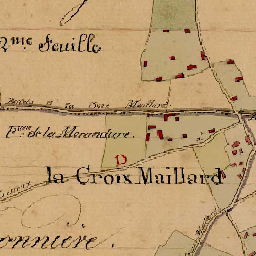 2.me Feuille
la Croix Maillard
F.me de la Morandiere.
D
la Croix Maillard
onniére.